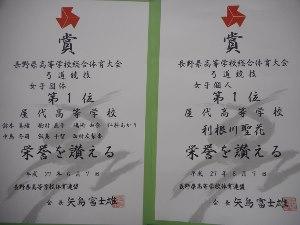 賞
長野県高等学校総合体育大会
弓道競技
女子団体
第1位
屋代高等学校
栄誉を讃える
平成27年6月7日
長野県高等学校体育連盟
会長 矢島富士雄
賞
長野県高等学校総合体育大会
弓道競技
女子個人
第1位
屋代高等学校
利根川聖花
栄誉を讃える
平成27年6月7日
長野県高等学校体育連盟
会長 矢島富士雄